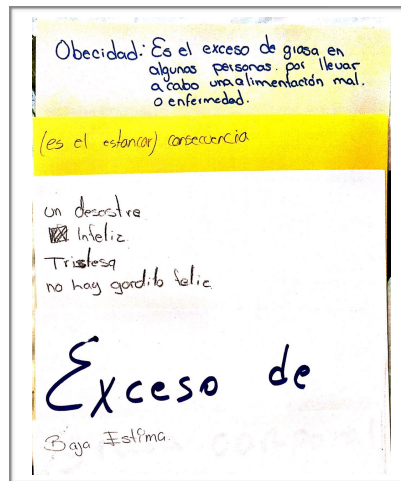 Obecidad: Es el exceso de grasa en
algunas personas. por llevar
a cabo una alimentación mal.
o enfermedad.
(es el estancar) consecuencia
un desastre
Infeliz
Tristesa
no hay gordito feliz
Exceso de
Baja Estima.